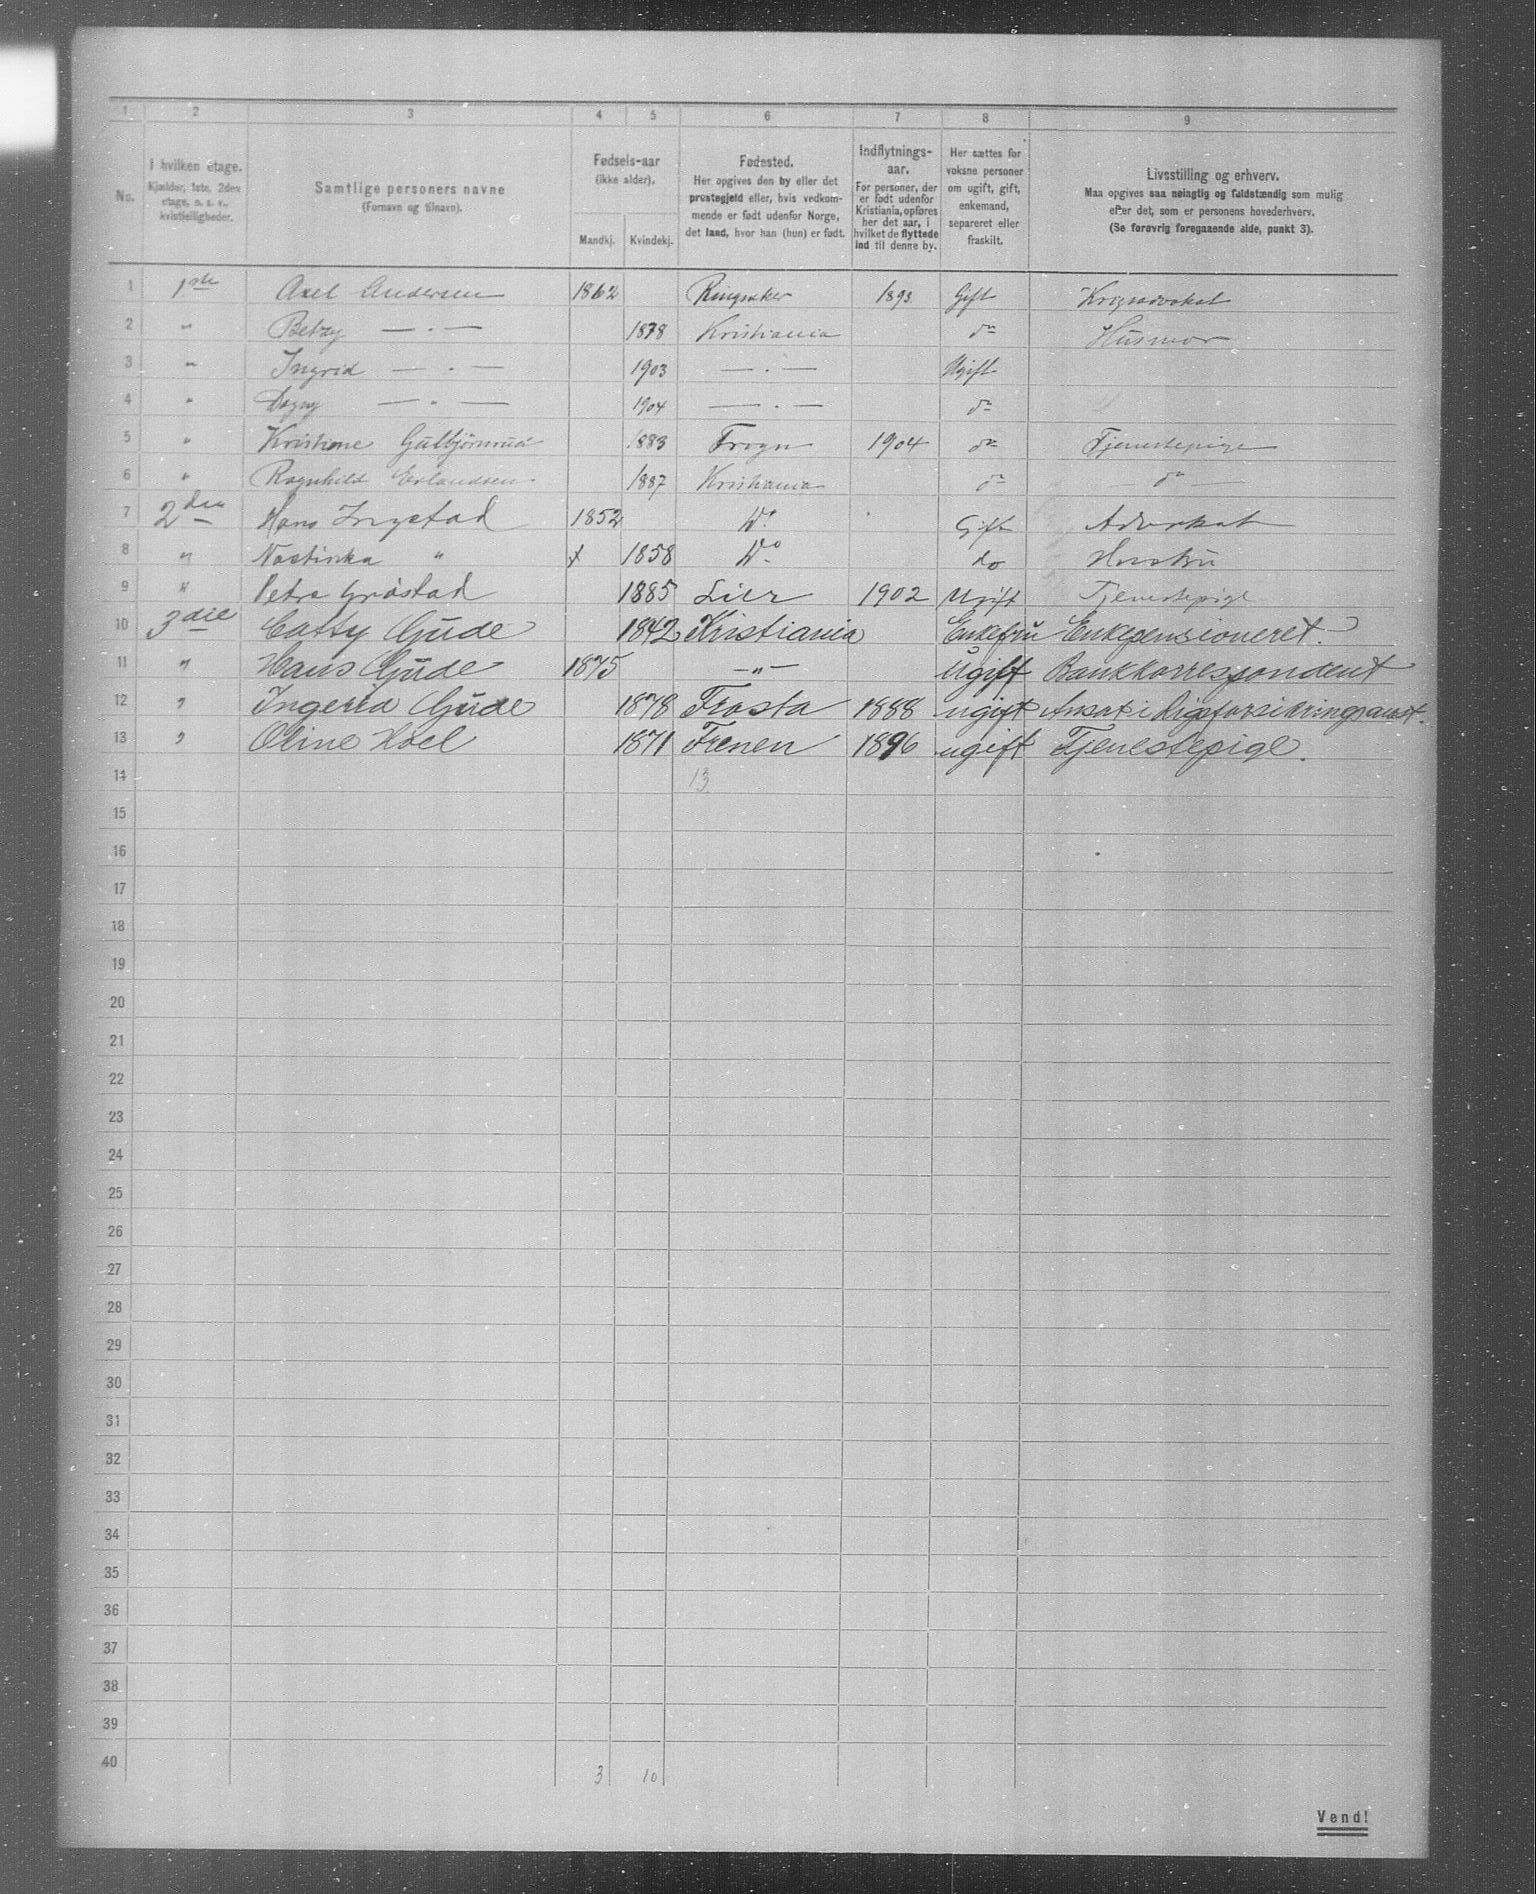 1 2 3 4 5 6 7 8 9
No.
I hvilken etage.
Kjælder, 1ste, 2den
etage, o. s. v.,
kvistleiligheder.
Samtlige personers navne
(Fornavn og tilnavn).
Fødsels-aar
(ikke alder).
Mandkj. Kvindekj.
Fødested.
Her opgives den by eller det
præstegjeld eller, hvis vedkom-
mende er født udenfor Norge,
det land, hvor han (hun) er født.
Indflytnings-
aar.
For personer, der
er født udenfor
Kristiania, opføres
her det aar, i
hvilket de flyttede
ind til denne by.
Her sættes for
voksne personer
om ugift, gift,
enkemand,
separeret eller
fraskilt.
Livsstilling og erhverv.
Maa opgives saa nøiagtig og fuldstændig som mulig
efter det, som er personens hovederhverv.
(Se forøvrig foregaaende side, punkt 3).
1 1ste Axel Andersen 1862 Ringsaker 1893 Gift Krigsadvokat
2 " Betzy — . — 1878 Kristiania do Husmor
3 " Ingrid — . — 1903 — . — Ugift
4 " Dagny — . — 1904 — . — do
5 " Kristine Gulbjørnrud 1883 Frogn 1904 do Tjenestepige
6 " Ragnhild Erlandsen 1887 Kristiania do do
7 2den Hans Ingstad 1852 Do Gift Advokat
8 " Nastinka " x 1858 Do do Hustru
9 " Petra Grøstad 1885 Lier 1902 Ugift Tjenestepige
10 3die Catty Gude 1842 Kristiania Enkefru Enkepensioneret.
11 " Hans Gude 1875 — " — Ugift Bankkorrespondent
12 " Ingerid Gude 1878 Frosta 1888 ugift Ansat i Rigsforsikringsanst.
13 " Oline Hoel 1871 Frenen 1896 ugift Tjenestepige.
14 13
15
16
17
18
19
20
21
22
23
24
25
26
27
28
29
30
31
32
33
34
35
36
37
38
39
40
3 10
Vend!